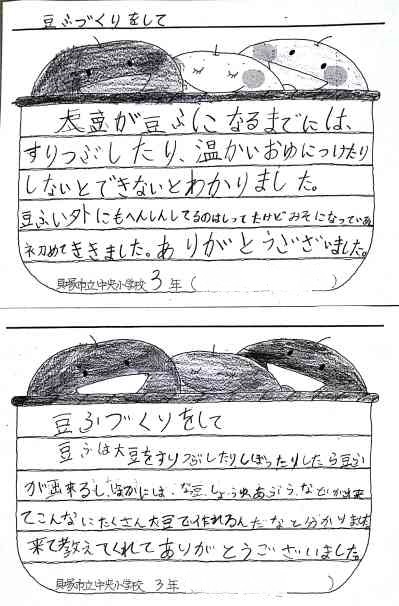 豆ふづくりをして
大豆が豆ふになるまでには、
すりつぶしたり、温かいおゆにつけたり
しないとできないとわかりました。
豆ふい外にもへんしんしてるのはしってたけどみそになっていあ
ネ初めてききました。ありがとうございました。
貝塚市立中央小学校 3年(　　)
豆ふづくりをして
豆ふは大豆をすりつぶしたりしぼったりしたら豆ふ
が出来るし、ほかには、なっ豆、しょうゆ、あぶら、などが出来
てこんなにたくさん大豆で作れるんだなと分かりました
来て教えてくれてありがとうございました。
貝塚市立中央小学校 3年(　　)